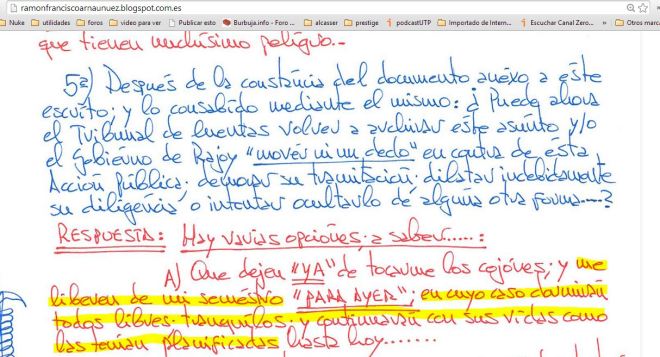 ramonfranciscoarnaunuez.blogspot.com.es
Nuke utilidades foros video para ver Publicar esto Burbuja.info - Foro ... alcasser prestige podcastUTP Importado de Intern... Escuchar Canal Zero... » Otros marca
que tienen muchísimo peligro...
5ª) Después de la constancia del documento anexo a éste
escrito; y lo consabido mediante el mismo: ¿Puede ahora
el Tribunal de Cuentas volver a archivar este asunto y/o
el Gobierno de Rajoy "mover ni un dedo" en contra de ésta
Acción Pública; demorar su tramitación; dilatar indebidamente
su diligencia o intentar ocultarlo de alguna otra forma....?
RESPUESTA: Hay varias opciones, a saber.....:
A) Que dejen "YA" de tocarme los cojónes; y me
liberen de mi semestro "PARA AYER"; en cuyo caso dormirán
todos libres, tranquilos; y continuarán con sus vidas como
las tenían planificadas hasta hoy.......